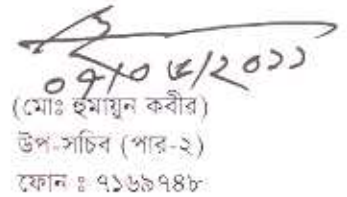 ০৭/০৫/২০১১
(মোঃ হুমায়ুন কবীর)
উপ-সচিব (পার-২)
ফোন ঃ ৭১৬৯৭৪৮